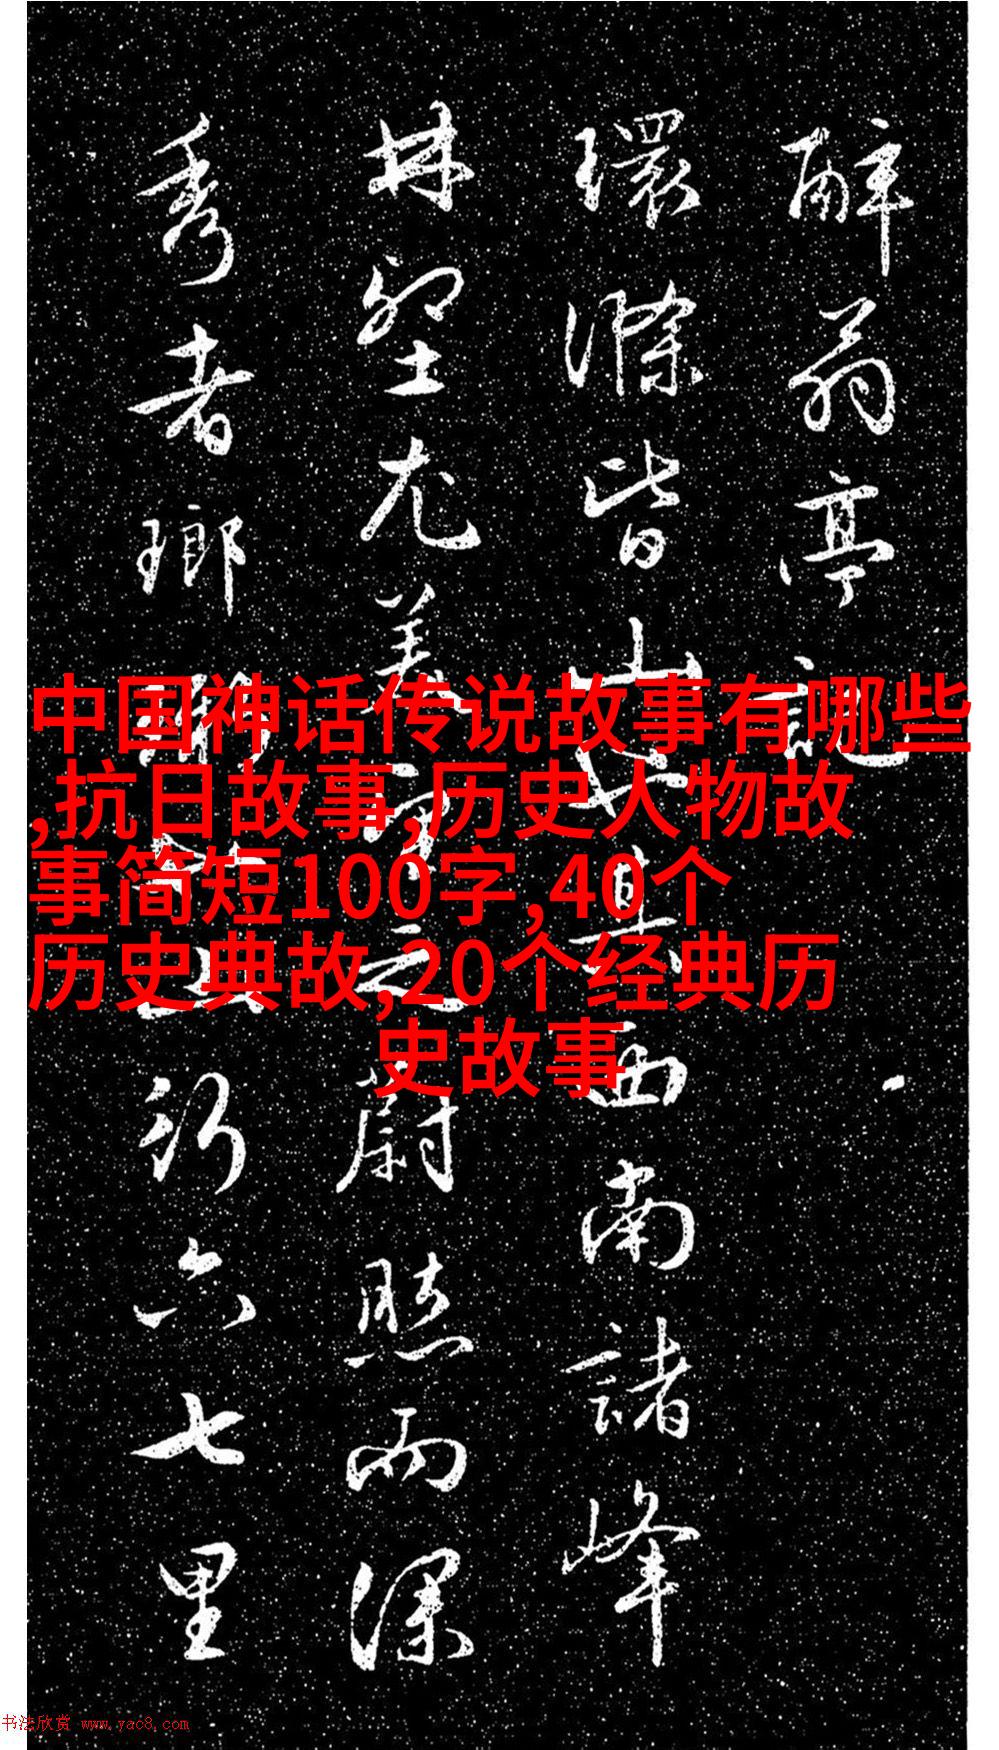 醉翁亭記
環滁皆山也其西南諸峰
林壑尤美望之蔚然而深
秀者瑯琊也山行六七里
中国神话传说故事有哪些
,抗日故事,历史人物故
事简短100字,40个
历史典故,20个经典历
史故事
书法欣赏 www.yac8.com